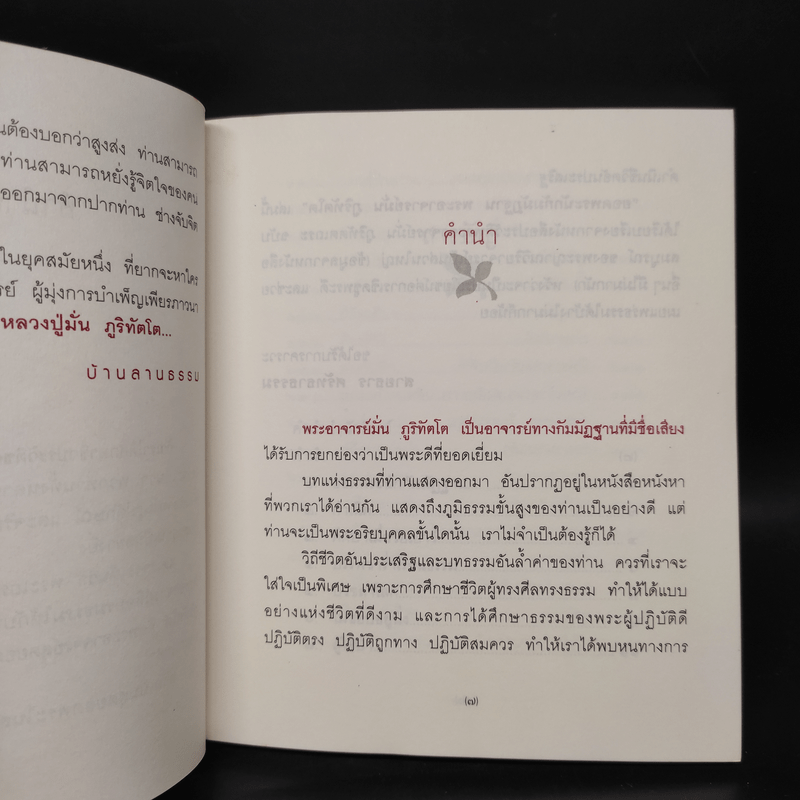 นต้องบอกว่าสูงส่ง ท่านสามารถ
ท่านสามารถหยั่งรู้จิตใจของคน
ออกมาจากปากท่าน ช่างจับจิต
ในยุคสมัยหนึ่ง ที่ยากจะหาใคร
รย์ ผู้มุ่งการบำเพ็ญเพียรภาวนา
หลวงปู่มั่น ภูริทัตโต...
บ้านลานธรรม
คำนำ
พระอาจารย์มั่น ภูริทัตโต เป็นอาจารย์ทางกัมมัฏฐานที่มีชื่อเสียง
ได้รับการยกย่องว่าเป็นพระดีที่ยอดเยี่ยม
บทแห่งธรรมที่ท่านแสดงออกมา อันปรากฏอยู่ในหนังสือหนังหา
ที่พวกเราได้อ่านกัน แสดงถึงภูมิธรรมขั้นสูงของท่านเป็นอย่างดี แต่
ท่านจะเป็นพระอริยบุคคลขั้นใดนั้น เราไม่จำเป็นต้องรู้ก็ได้
วิถีชีวิตอันประเสริฐและบทธรรมอันล้ำค่าของท่าน ควรที่เราจะ
ใส่ใจเป็นพิเศษ เพราะการศึกษาชีวิตผู้ทรงศีลทรงธรรม ทำให้ได้แบบ
อย่างแห่งชีวิตที่ดีงาม และการได้ศึกษาธรรมของพระผู้ปฏิบัติดี
ปฏิบัติตรง ปฏิบัติถูกทาง ปฏิบัติสมควร ทำให้เราได้พบหนทางการ
(๗)